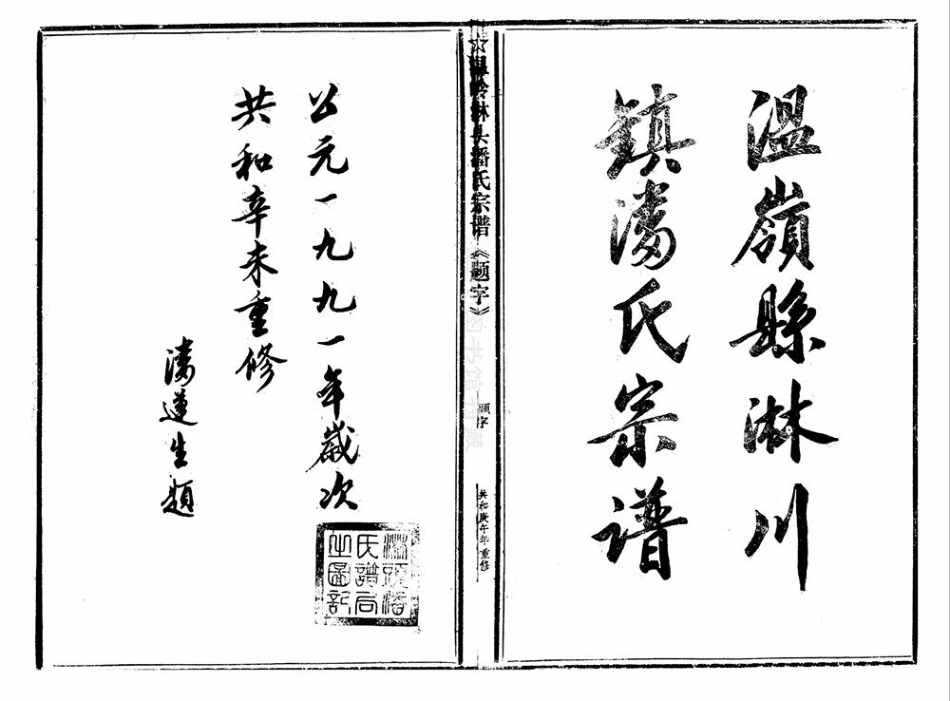 温嶺縣淋川
鎮潘氏宗谱
☆温岭淋头潘氏宗谱《题字》
题字
共和庚午年重修
公元一九九一年歲次
共和辛未重修
潘生题
淋頭潘
氏譜局
之圖記